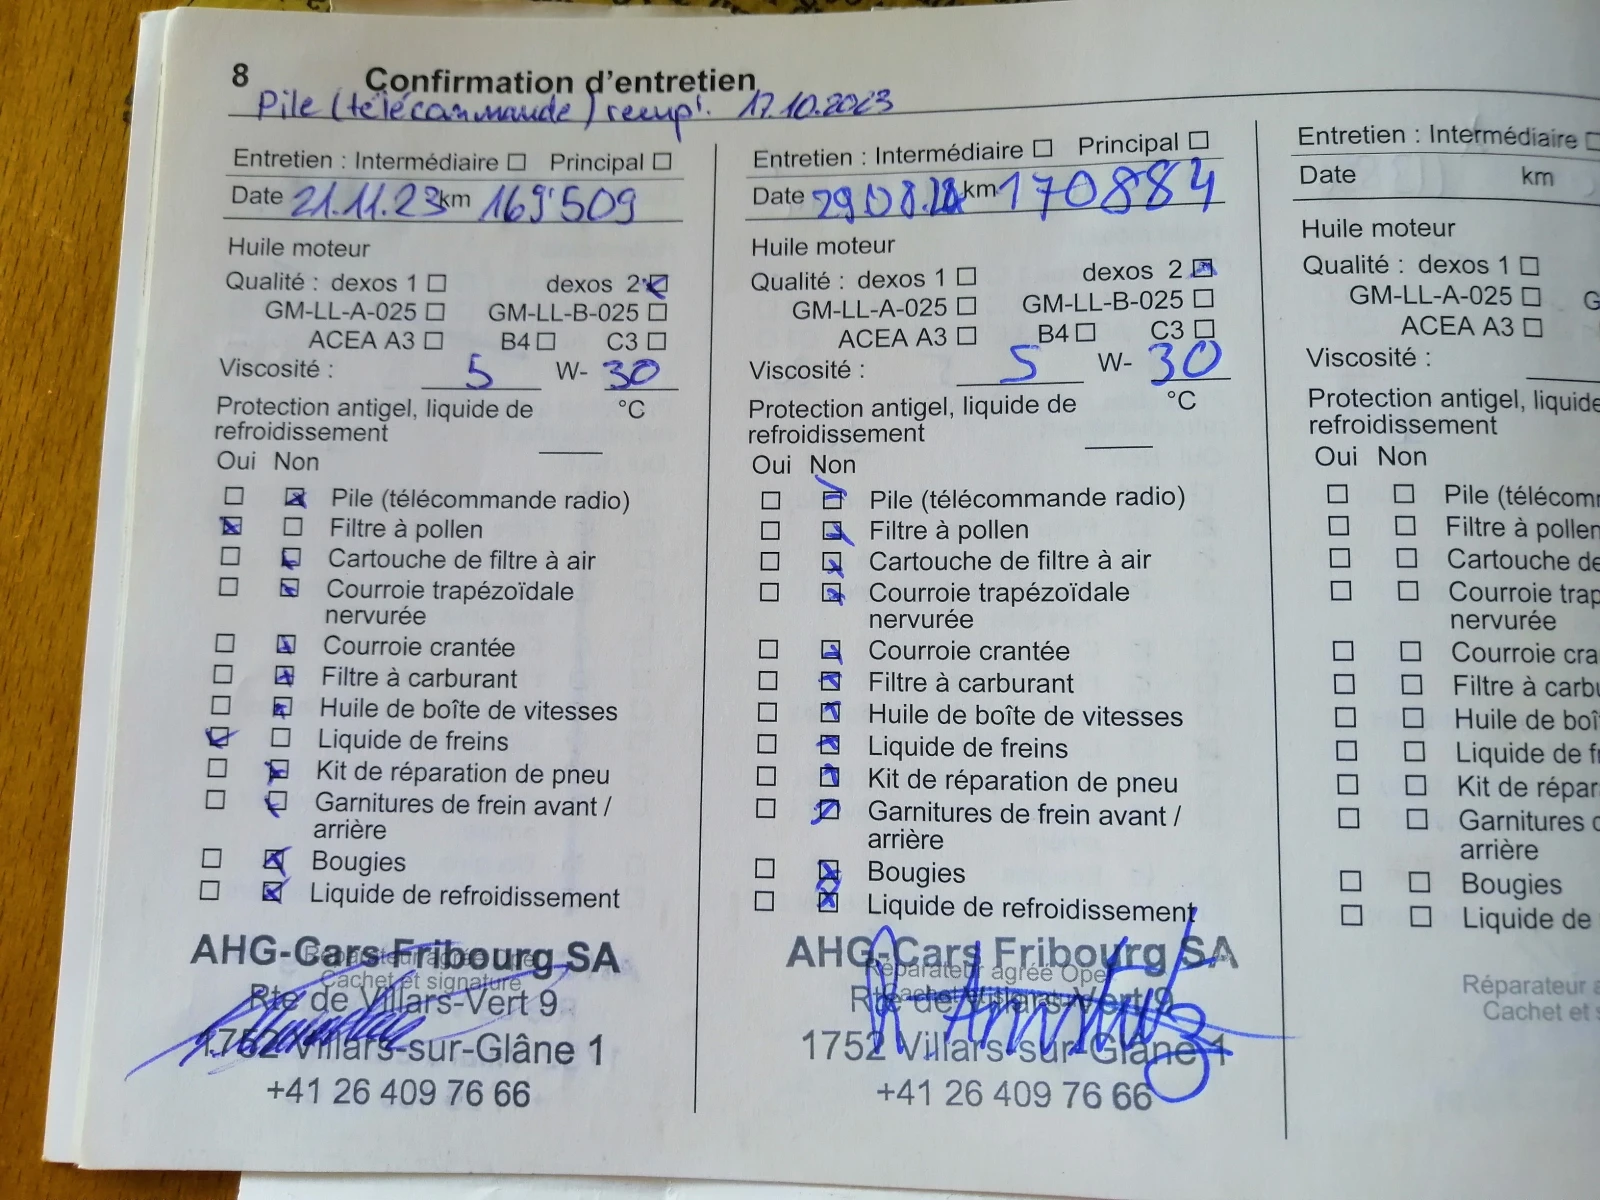 8 Confirmation d'entretien
Pile (télécommande) 17.10.2023
Entretien : Intermédiaire ☐ Principal ☐
Date 21.11.23 km 169'509
Huile moteur
Qualité : dexos 1 ☐ dexos 2 ☒
GM-LL-A-025 ☐ GM-LL-B-025 ☐
ACEA A3 ☐ B4 ☐ C3 ☐
Viscosité : 5 W- 30
Protection antigel, liquide de °C
refroidissement
Oui Non
☐ ☒ Pile (télécommande radio)
☒ ☐ Filtre à pollen
☐ ☒ Cartouche de filtre à air
☐ ☒ Courroie trapézoïdale
nervurée
☐ ☒ Courroie crantée
☐ ☒ Filtre à carburant
☐ ☒ Huile de boîte de vitesses
☒ ☐ Liquide de freins
☐ ☒ Kit de réparation de pneu
☐ ☒ Garnitures de frein avant /
arrière
☐ ☒ Bougies
☐ ☒ Liquide de refroidissement
AHG-Cars Fribourg SA
Réparateur agréé Opel
Cachet et signature
Rte de Villars-Vert 9
1752 Villars-sur-Glâne 1
+41 26 409 76 66
Entretien : Intermédiaire ☐ Principal ☐
Date 29.08. km 170884
Huile moteur
Qualité : dexos 1 ☐ dexos 2 ☒
GM-LL-A-025 ☐ GM-LL-B-025 ☐
ACEA A3 ☐ B4 ☐ C3 ☐
Viscosité : 5 W- 30
Protection antigel, liquide de °C
refroidissement
Oui Non
☐ ☒ Pile (télécommande radio)
☐ ☒ Filtre à pollen
☐ ☒ Cartouche de filtre à air
☐ ☒ Courroie trapézoïdale
nervurée
☐ ☒ Courroie crantée
☐ ☒ Filtre à carburant
☐ ☒ Huile de boîte de vitesses
☐ ☒ Liquide de freins
☐ ☒ Kit de réparation de pneu
☐ ☒ Garnitures de frein avant /
arrière
☐ ☒ Bougies
☐ ☒ Liquide de refroidissement
AHG-Cars Fribourg SA
Réparateur agréé Opel
Cachet et signature
Rte de Villars-Vert 9
1752 Villars-sur-Glâne 1
+41 26 409 76 66
Entretien : Intermédiaire ☐
Date km
Huile moteur
Qualité : dexos 1 ☐
GM-LL-A-025 ☐ G
ACEA A3 ☐
Viscosité :
Protection antigel, liquide
refroidissement
Oui Non
☐ ☐ Pile (télécom
☐ ☐ Filtre à pollen
☐ ☐ Cartouche de
☐ ☐ Courroie trap
nervurée
☐ ☐ Courroie cra
☐ ☐ Filtre à carbu
☐ ☐ Huile de boî
☐ ☐ Liquide de fr
☐ ☐ Kit de répar
☐ ☐ Garnitures d
arrière
☐ ☐ Bougies
☐ ☐ Liquide de
Réparateur a
Cachet et s